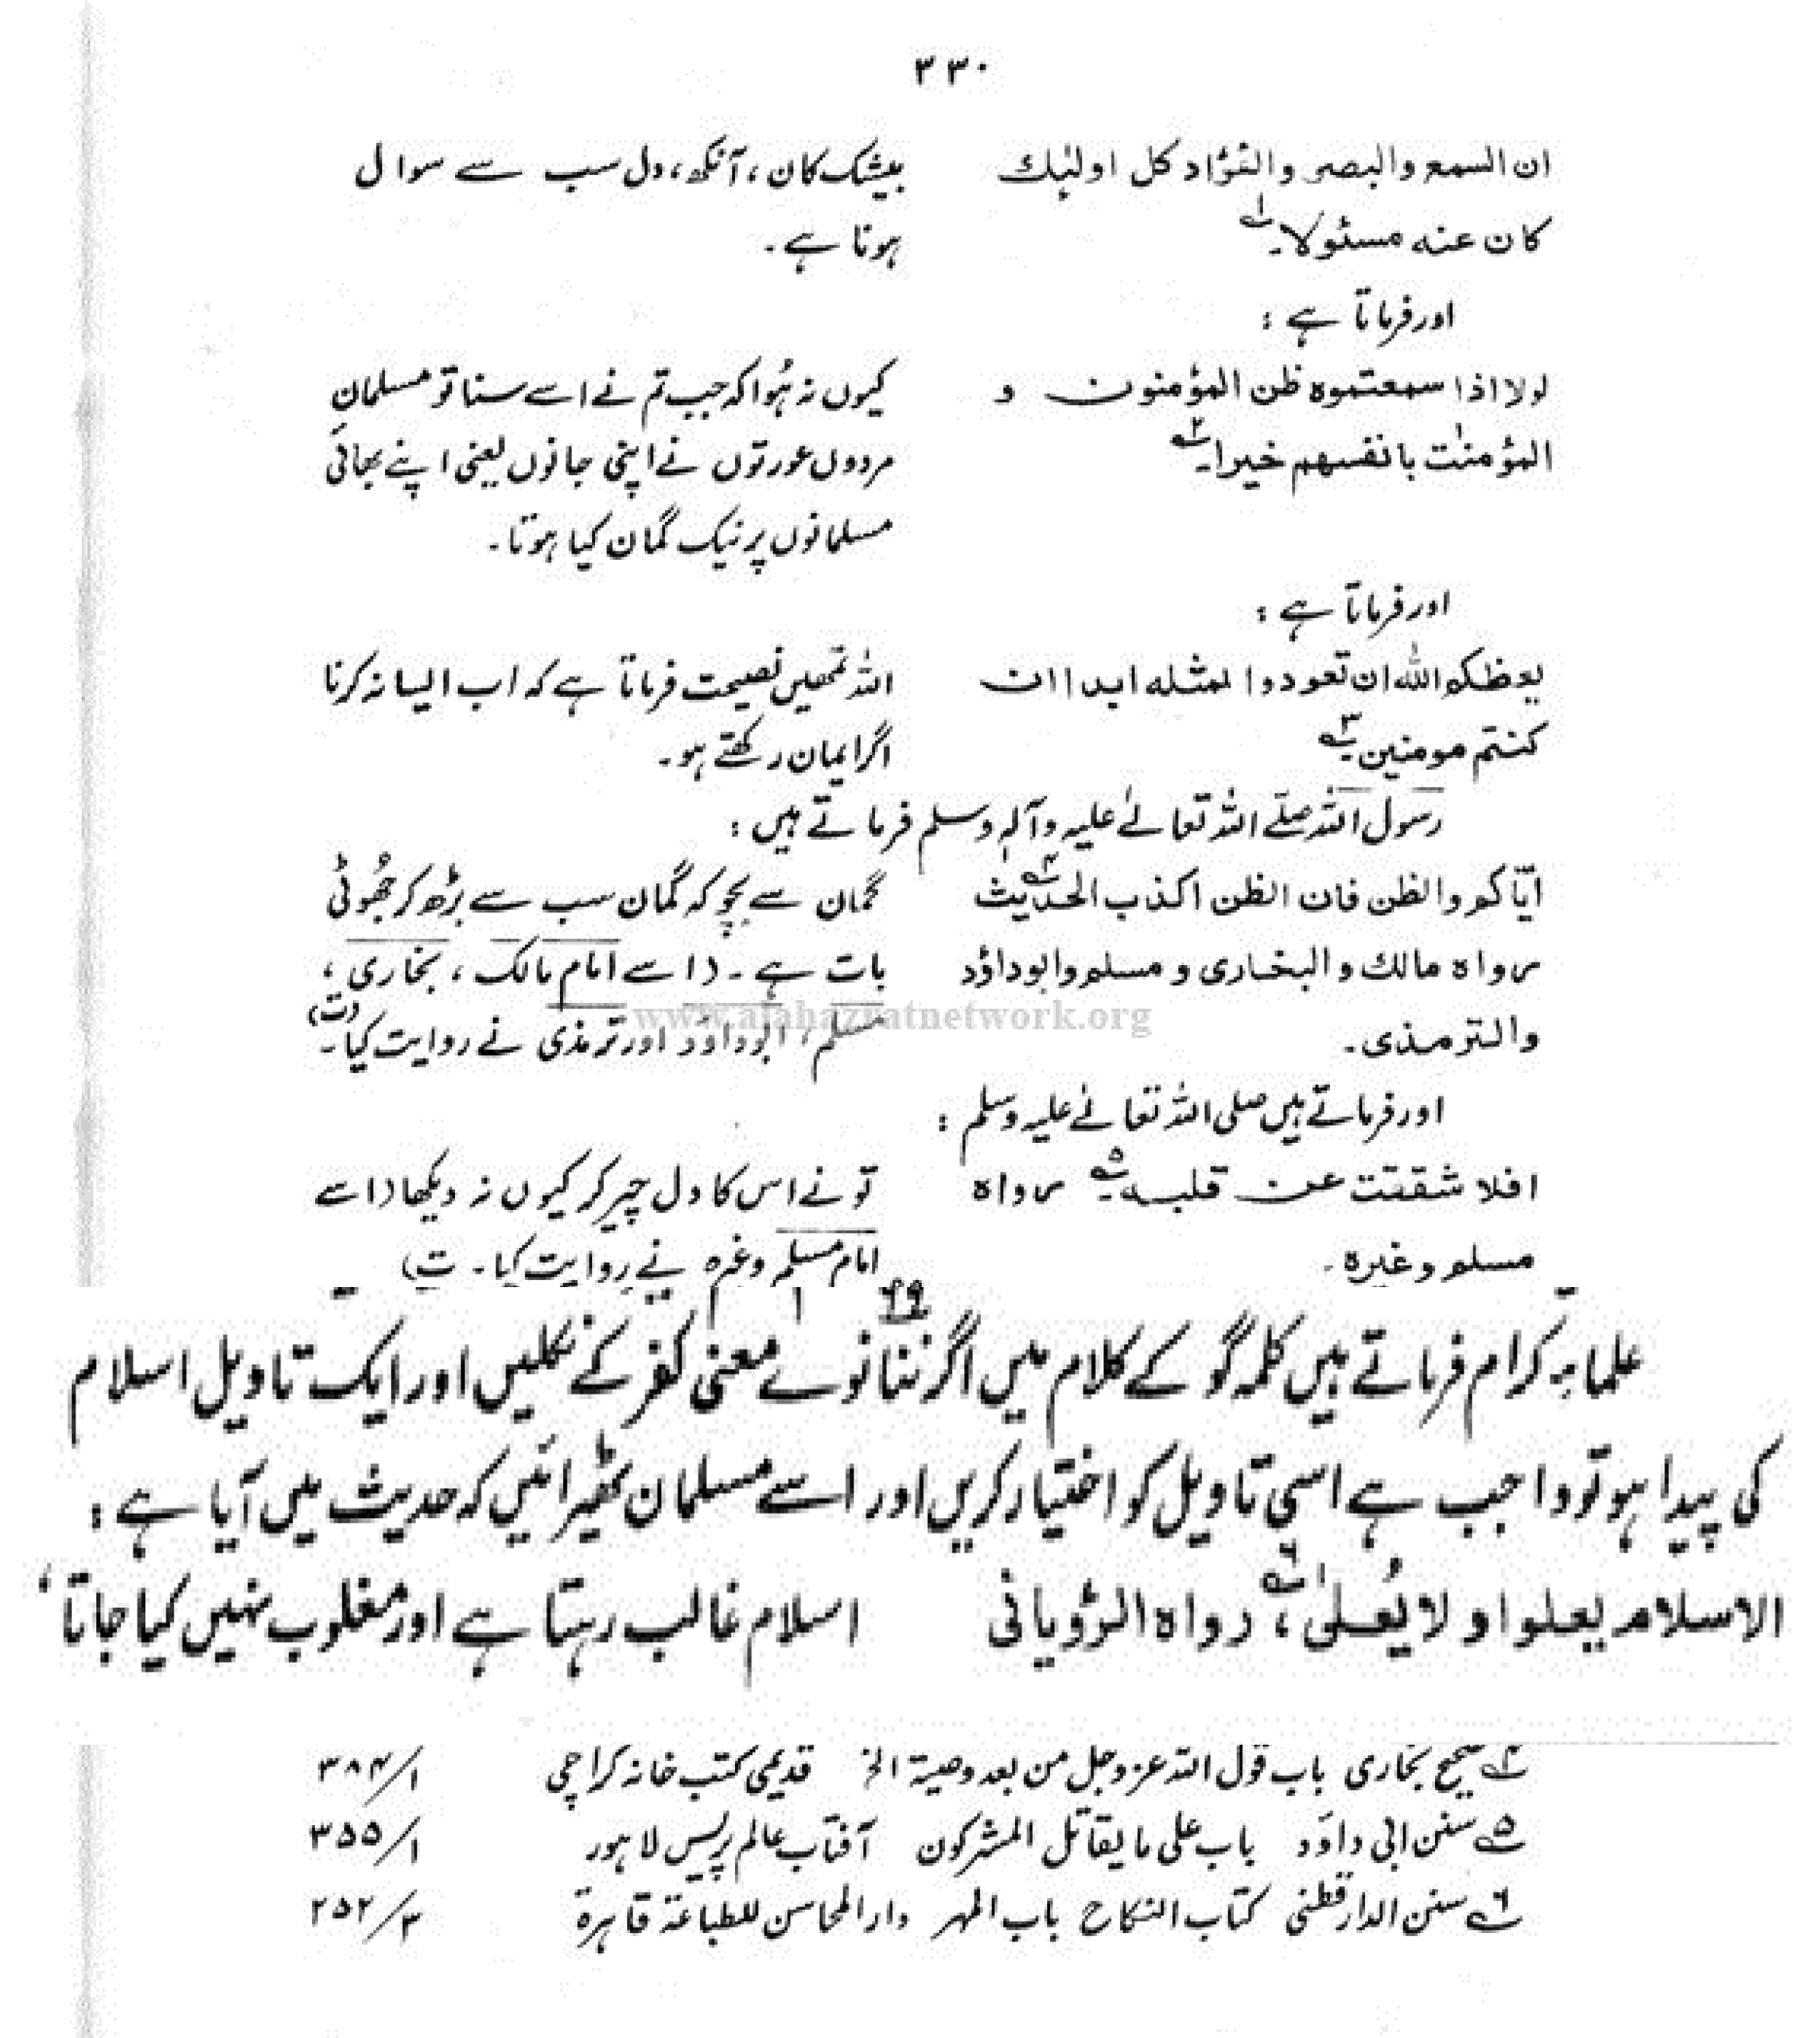 ۳۳۰
ان السمع والبصر والفؤاد كل اولٰئك بیشک کان، آنکھ، دل سب سے سوال
كان عنه مسئولا۔ ۱؎ ہونا ہے۔
اور فرماتا ہے :
لولا اذا سمعتموه ظن المؤمنون و کیوں نہ ہُوا کہ جب تم نے اسے سنا تو مسلمان
المؤمنٰت بانفسهم خيرا۔ ۲؎ مردوں عورتوں نے اپنی جانوں یعنی اپنے بھائی
مسلمانوں پر نیک گمان کیا ہوتا۔
اور فرماتا ہے :
يعظكم الله ان تعودوا لمثله ابدا ان اللہ تمھیں نصیحت فرماتا ہے کہ اب ایسا نہ کرنا
كنتم مومنين۔ ۳؎ اگر ایمان رکھتے ہو۔
رسول اللہ صلے اللہ تعالےٰ علیہ وآلہٖ وسلم فرماتے ہیں :
ايّاكم والظن فان الظن اكذب الحديث ۴؎ گمان سے بچو کہ گمان سب سے بڑھ کر جھُوٹی
رواه مالك والبخارى و مسلم وابوداؤد بات ہے۔ (اسے امام مالک، بخاری،
والترمذى۔ مسلم، ابوداؤد اور ترمذی نے روایت کیا۔ ت)
www.alahazratnetwork.org
اور فرماتے ہیں صلی اللہ تعالےٰ علیہ وسلم :
افلا شققت عن قلبه ۵؎ رواه تو نے اس کا دل چیر کر کیوں نہ دیکھا (اسے
مسلم وغيره۔ امام مسلم وغیرہ نے روایت کیا۔ ت)
علماء کرام فرماتے ہیں کلمہ گو کے کلام میں اگر ننانوے ۹۹ معنی کفر کے نکلیں اور ایک تاویل اسلام
کی پیدا ہو تو واجب ہے اسی تاویل کو اختیار کریں اور اسے مسلمان ٹھیرائیں کہ حدیث میں آیا ہے :
الاسلام يعلوا و لا يُعلىٰ ۶؎، رواه الرؤيانى اسلام غالب رہتا ہے اور مغلوب نہیں کیا جاتا،
۴؎ صحیح بخاری باب قول اللہ عزوجل من بعد وصیۃ الخ قدیمی کتب خانہ کراچی ۱/۳۸۴
۵؎ سنن ابی داؤد باب علی ما یقاتل المشرکون آفتاب عالم پریس لاہور ۱/۳۵۵
۶؎ سنن الدارقطنی کتاب النکاح باب المہر دار المحاسن للطباعۃ قاہرۃ ۳/۲۵۲